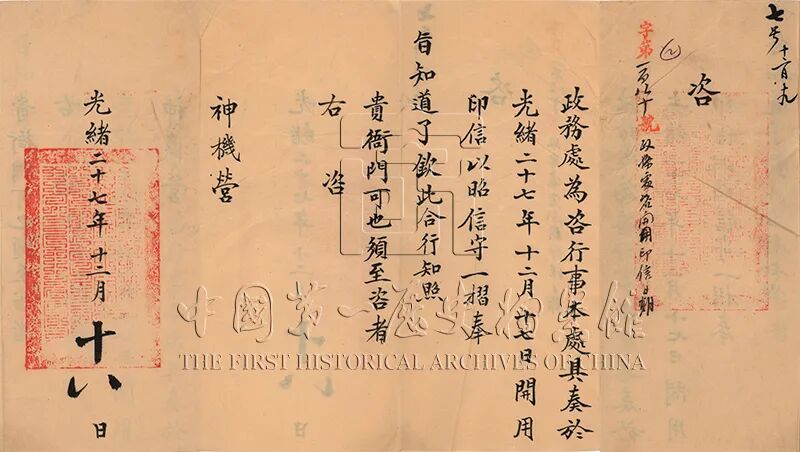 七号 十二百九
字第一百八十號 政務處咨開用印信日期
咨
政務處為咨行事本處具奏於
光緒二十七年十二月十七日開用
印信以昭信守一摺奉
旨知道了欽此合行知照
貴衙門可也須至咨者
右咨
神機營
光緒二十七年十二月十八日
中国第一历史档案馆
THE FIRST HISTORICAL ARCHIVES OF CHINA